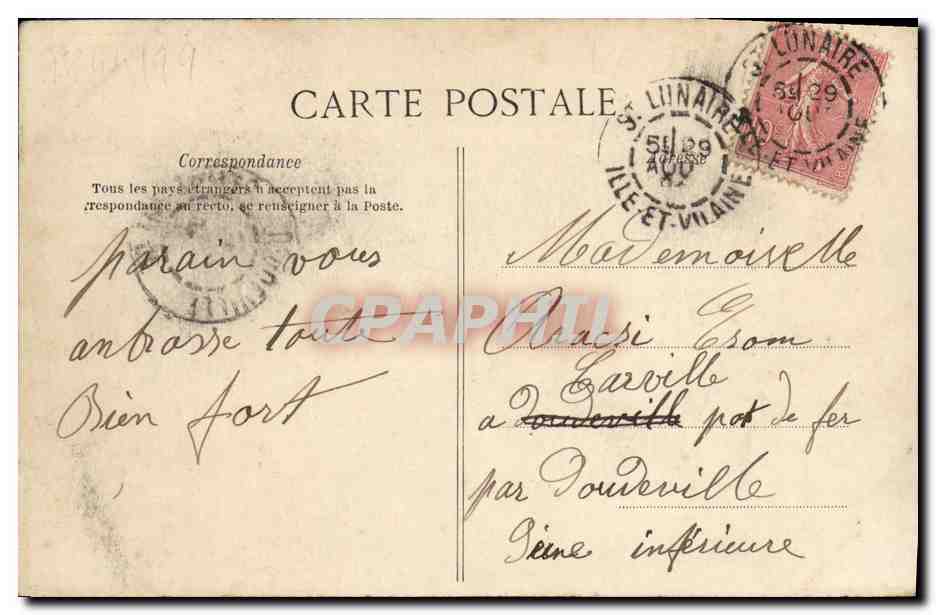 CARTE POSTALE
Correspondance
Adresse
Tous les pays étrangers n'acceptent pas la
respondance au recto, se renseigner à la Poste.
ST LUNAIRE
5E 29
AOU
ILLE-ET-VILAINE
ST LUNAIRE
5E 29
AOU
ILLE-ET-VILAINE
DOUDEVILLE
parain vous
anbrasse toute
Bien fort
Mademoiselle
Crom
Carville
a Doudeville pot de fer
par Doudeville
Seine inférieure
CPAPHIL